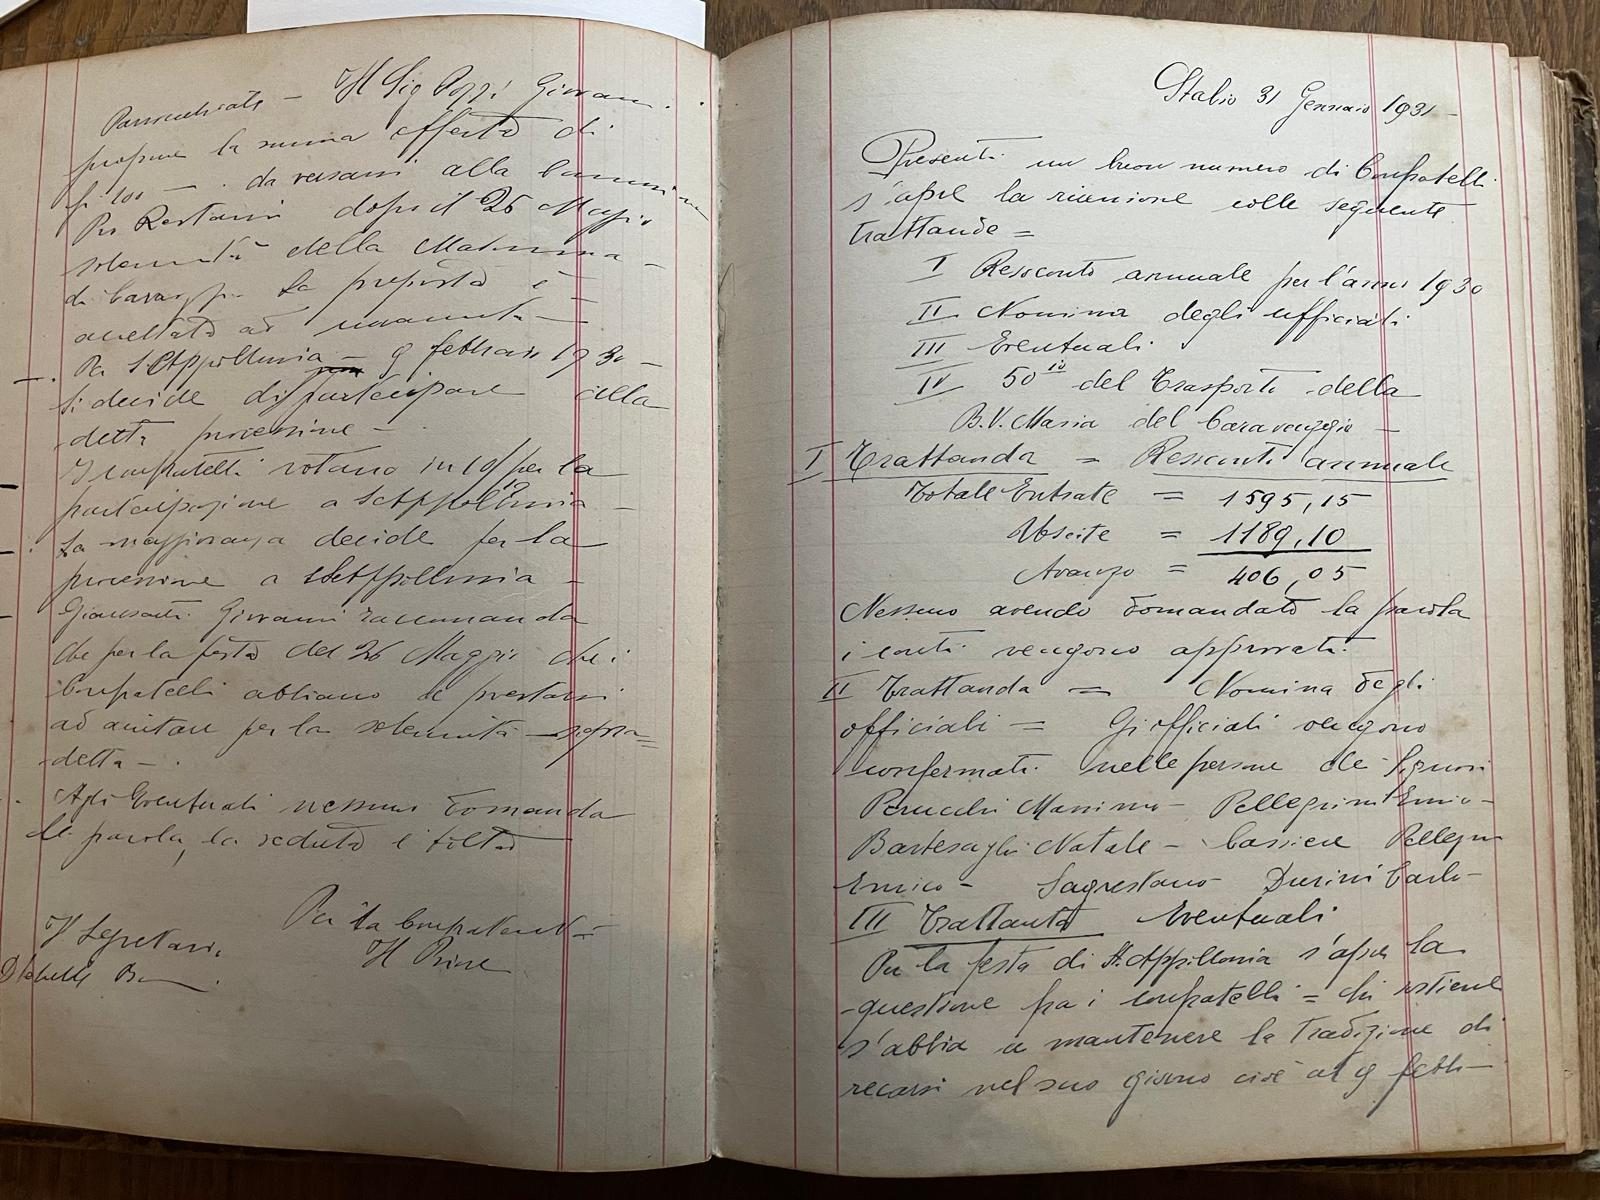 Parrocchiale — Il Sig Pozzi Giovanni
propone la somma offerta di
fr. 100 — da versarsi alla
Pro Restauri dopo il 26 Maggio
solennità della Madonna
di Caravaggio La proposta è
accettata ad
Per S. Appollonia — 9 febbraio 1930 —
si decide di partecipare alla
detta processione —
I confratelli votano in 10 per la
partecipazione a S. Appollonia —
La maggioranza decide per la
processione a S. Appollonia —
Giovanni raccomanda
che per la festa del 26 Maggio che i
Confratelli abbiano a prestarsi
ad aiutare per la solennità sopra=
detta — .
Agli Eventuali nessuno domanda
la parola, la seduta è tolta
Per la Confraternita
Il Segretario
Il Priore
Stabio 31 Gennaio 1931 —
Presenti un buon numero di Confratelli
s'apre la riunione colle seguente
trattande =
I Resoconto annuale per l'anno 1930
II Nomina degli ufficiali
III Eventuali
IV 50 io del Trasporto della
B.V. Maria del Caravaggio —
I Trattanda = Resoconto annuale
Totale Entrate = 1595,15
Uscite = 1189,10
Avanzo = 406,05
Nessuno avendo domandato la parola
i conti vengono approvati.
II Trattanda = Nomina degli
officiali = Gi officiali vengono
confermati nelle persone dei Signori
Perucchi Massimo — Pellegrini Enrico —
Bartesaghi Natale — Cassiere Pellegri
Enrico — Sagrestano Durini Carlo —
III Trattanta Eventuali
Per la festa di St. Appillonia s'apre la
questione fra i confratelli = chi sostiene
s'abbia a mantenere la tradizione di
recarsi nel suo giorno cioè al 9 febb —